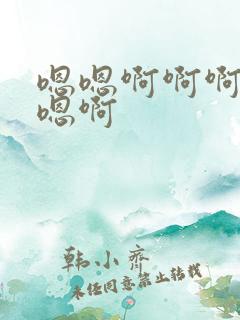 嗯嗯啊啊啊
嗯啊
韩小齐
未经同意禁止转载